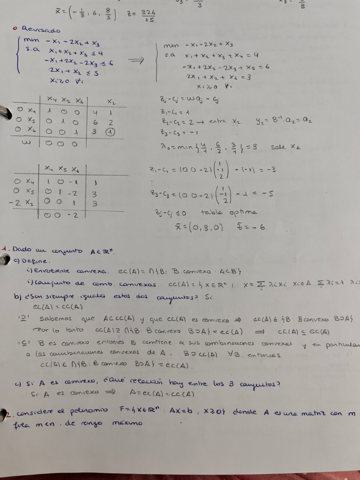 x̄ = (-4/3, 6, 8/3) z = 326/15
Revisado
min -x₁ - 2x₂ + x₃
s.a x₁ + x₂ + x₃ ≤ 4
-x₁ + 2x₂ - 2x₃ ≤ 6
2x₁ + x₂ ≤ 3
xᵢ ≥ 0 ∀i
⟹
min -x₁ - 2x₂ + x₃
s.a x₁ + x₂ + x₃ + x₄ = 4
-x₁ + 2x₂ - 2x₃ + x₅ = 6
2x₁ + x₂ + x₆ = 3
xᵢ ≥ 0 ∀i
x₄ x₅ x₆ x₂
0 x₄ 1 0 0 4 1
0 x₅ 0 1 0 6 2
0 x₆ 0 0 1 3 1
w 0 0 0
zⱼ - cⱼ = w aⱼ - cⱼ
z₁ - c₁ = 1
z₂ - c₂ = 2 → entra x₂ y₂ = B⁻¹·a₂ = a₂
z₃ - c₃ = -1
= min{4/1, 6/2, 3/1} = 3 sale x₆
x₄ x₅ x₆
0 x₄ 1 0 -1 1
0 x₅ 0 1 -2 3
-2 x₂ 0 0 1 3
0 0 -2
z₁ - c₁ = (0 0 -2) (1 -1 2) - (-1) = -3
- 1 = -5
zⱼ - cⱼ ≤ 0 tabla óptima
x̄ = (0, 3, 0) z̄ = -6
1. Dado un conjunto A⊂ℝⁿ
a) Define
i) Envolvente convexa. ec(A) = ∩{B: B convexo A⊂B}
ii) Conjunto de comb convexas. cc(A) = {x∈ℝⁿ, x = Σ λᵢxᵢ xᵢ∈A
b) ¿Son siempre iguales estos dos conjuntos? Sí
ec(A) = cc(A)
"⊇" Sabemos que A⊂cc(A) y que cc(A) es convexo ⟹ cc(A) ∈ {B: B convexo B⊃A}
Por lo tanto cc(A) ⊇ ∩{B: B convexo B⊃A} = ec(A) ⟹ cc(A) ⊇ ec(A)
B es convexo entonces B contiene a sus combinaciones convexas y en particular
a las combinaciones convexas de A. B ⊃ cc(A) ∀B, entonces
cc(A) ⊂ ∩{B: B convexo B⊃A} = ec(A)
c) Si A es convexo, ¿Qué relación hay entre los 3 conjuntos?
Si A es convexo ⟹ A = ec(A) = cc(A)
2. Considere el poliedro F = {x∈ℝⁿ: Ax = b, x ≥ 0} donde A es una matriz con m
fila m≤n, de rango máximo